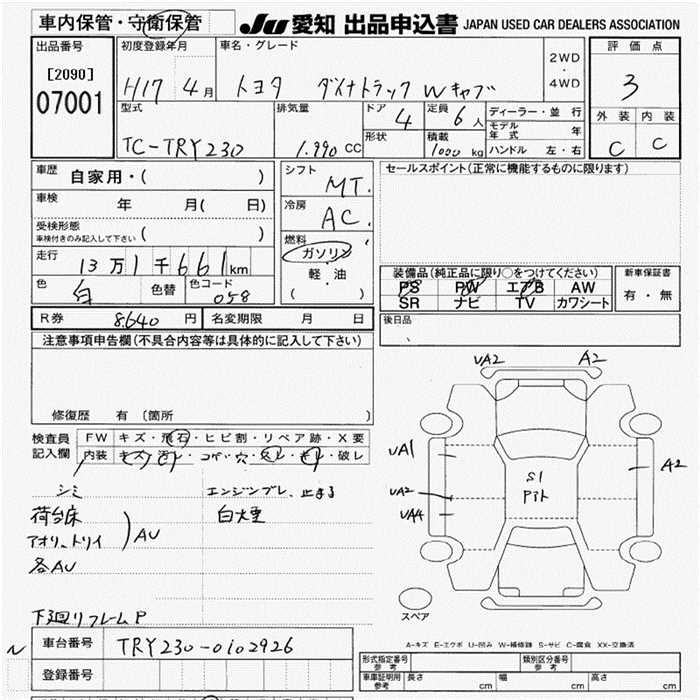 車内保管・守衛保管
JU 愛知 出品申込書 JAPAN USED CAR DEALERS ASSOCIATION
出品番号
[2090]
07001
初度登録年月
H17 4月
車名・グレード
トヨタ ダイナトラック Wキャブ
2WD
・
4WD
評価点
3
外装 内装
C C
型式
TC-TRY230
排気量
1.990 CC
ドア
4
形状
定員
6人
積載
1000 kg
ディーラー・並行
モデル年式 年
ハンドル 左・右
車歴
自家用・( )
車検
年 月( 日)
受検形態
車検付きのみ記入して下さい ( )
走行
13万1千661km
色
白
色替
色コード
058
シフト
MT.
冷房
AC.
燃料
ガソリン
軽・油
( )
セールスポイント(正常に機能するものに限ります)
装備品(純正品に限り○をつけてください)
PS PW エアB AW
SR ナビ TV カワシート
新車保証書
有・無
R券 8.640円
名変期限 月 日
後日品
注意事項申告欄(不具合内容等は具体的に記入して下さい)
修復歴 有 〔箇所 〕
検査員
記入欄
FW キズ・飛石・ヒビ割・リペア跡・X要
内装 キズ・汚レ・コゲ穴・スレ・キレ・破レ
シミ
荷台床
アオリ、トリイ
) AU
各AU
下廻リフレームP
エンジンブレ、止まる
白煙
UA2 A2
UA1
A2
S1
Pitト
UA2
UA4
スペア
A-キズ E-エクボ U-凹み W-補修跡 S-サビ C-腐食 XX-交換済
車台番号
TRY230-0102926
登録番号
形式指定番号
参考
類別区分番号
参考
車庫証明用
参考
長さ cm 幅 cm 高さ cm